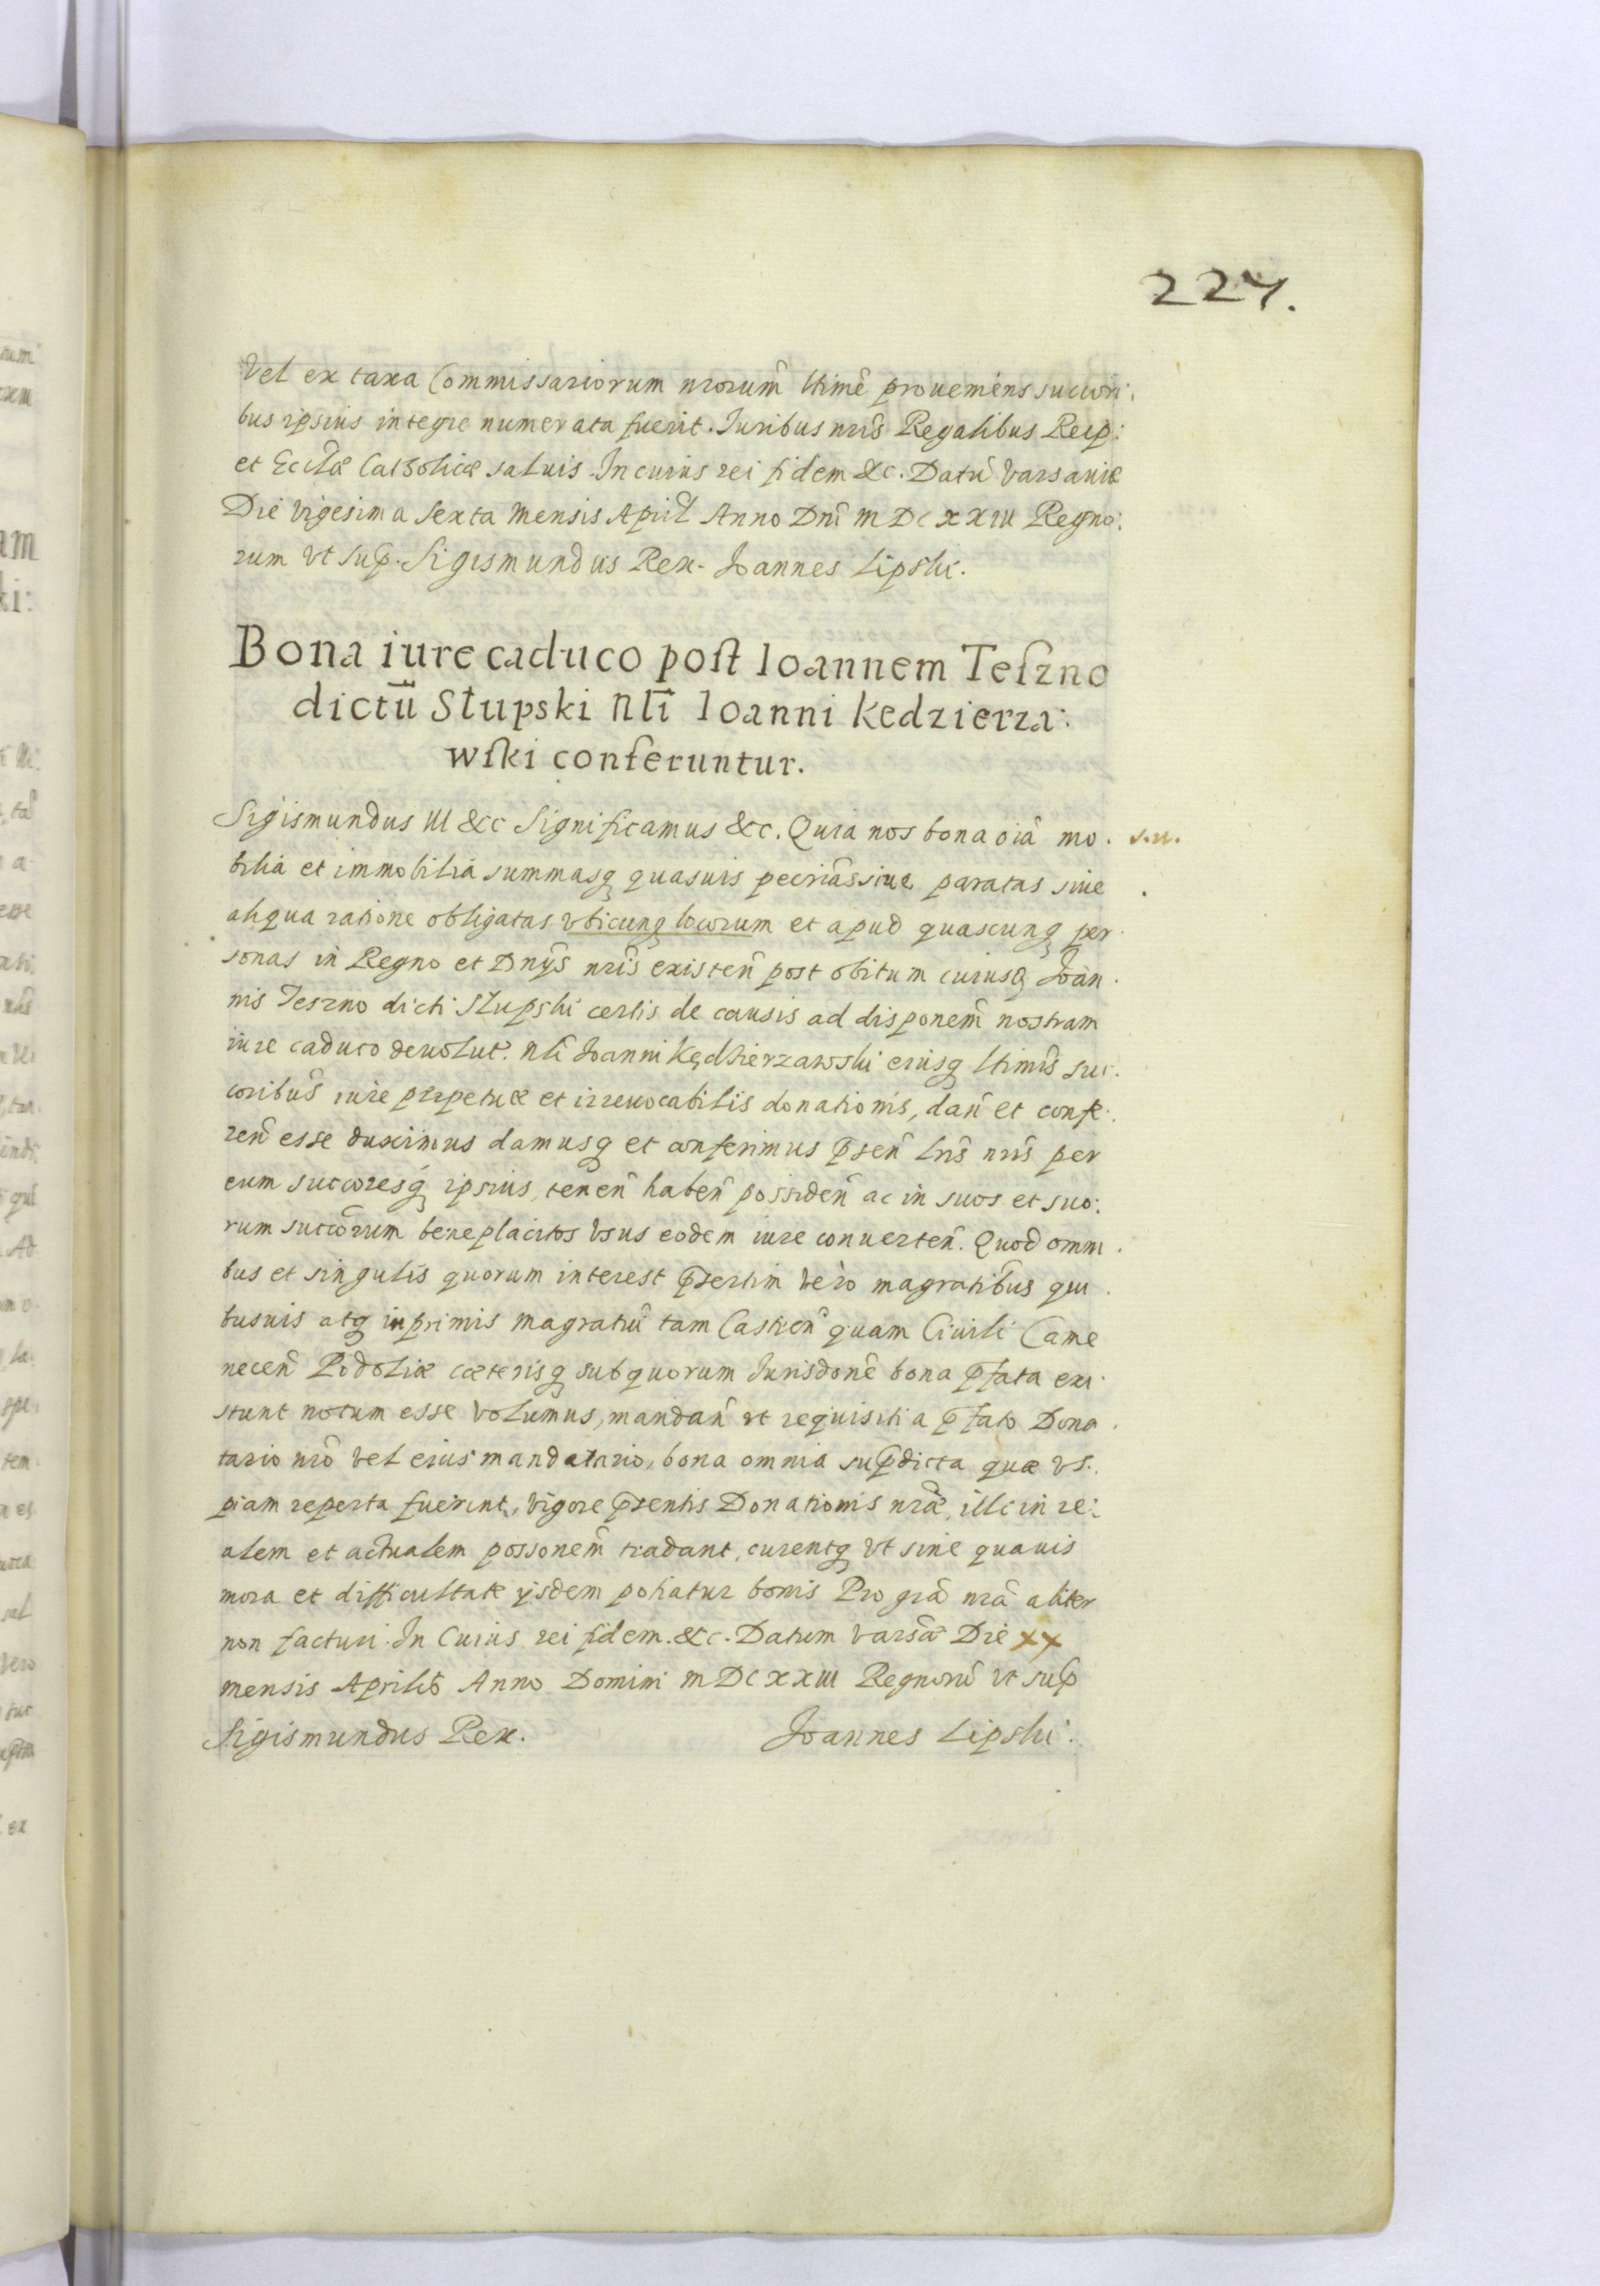 227.
Vel ex taxa Commissariorum nrorum̃ ltimẽ proueniens succori:
bus ipsius integre numerata fuerit. Iuribus nris̃ Regalibus Reip:
et Ecclæ̃ Catholicæ saluis. In cuius rei fidem &c. Datũ Varsauiæ
Die Vigesima sexta Mensis April Anno Dnĩ MDCXXIII Regno:
rum vt sup. Sigismundus Rex. Joannes Lipski.
Bona iure caduco post Ioannem Teszno
dictũ Słupski Nli Ioanni Kedzierza:
wski conferuntur.
Sigismundus III &c Significamus &c. Quia nos bona oĩa mo. s.n.
bilia et immobilia summasq quasuis pecrias̃ siue paratas siue
aliqua ratione obligatas vbicunq locorum et apud quascunq per
sonas in Regno et Dnijs nris̃ existeñ post obitum cuiusq Joan
nis Teszno dicti Słupski certis de causis ad disponem̃ nostram
iure caduco deuolut. Nli Joanni Kędzierzawski eiusq ltimis̃ suc
coribus̃ iure perpetuæ et irreuocabilis donationis, dañ et confe
reñ esse duximus damusq et conferimus pseñ lris̃ nris̃ per
eum succoresq ipsius, teneñ habeñ possideñ ac in suos et suo:
rum succorum̃ beneplacitos vsus eodem iure conuerteñ. Quod omni
bus et singulis quorum interest psertim vero magratibus̃ qui
busuis atq inprimis magratui tam Castreñ quam Ciuili Came
neceñ Podoliæ cæterisq sub quorum Jurisdonẽ bona pfata exi
stunt notum esse volumus, mandañ vt requisiti a pfato Dona
tario nrõ vel eius mandatario, bona omnia supdicta quæ vs.
piam reperta fuerint, vigore psentis Donationis nræ̃, illi in re:
alem et actualem possonem̃ tradant, curentq vt sine quauis
mora et difficultate ijsdem potiatur bonis Pro grã nrã aliter
non facturi. In Cuius rei fidem. &c. Datum Varsæ̃ Die XX
mensis Aprilis Anno Domini MDCXXIII Regnorũ vt sup
Sigismundus Rex. Joannes Lipski.